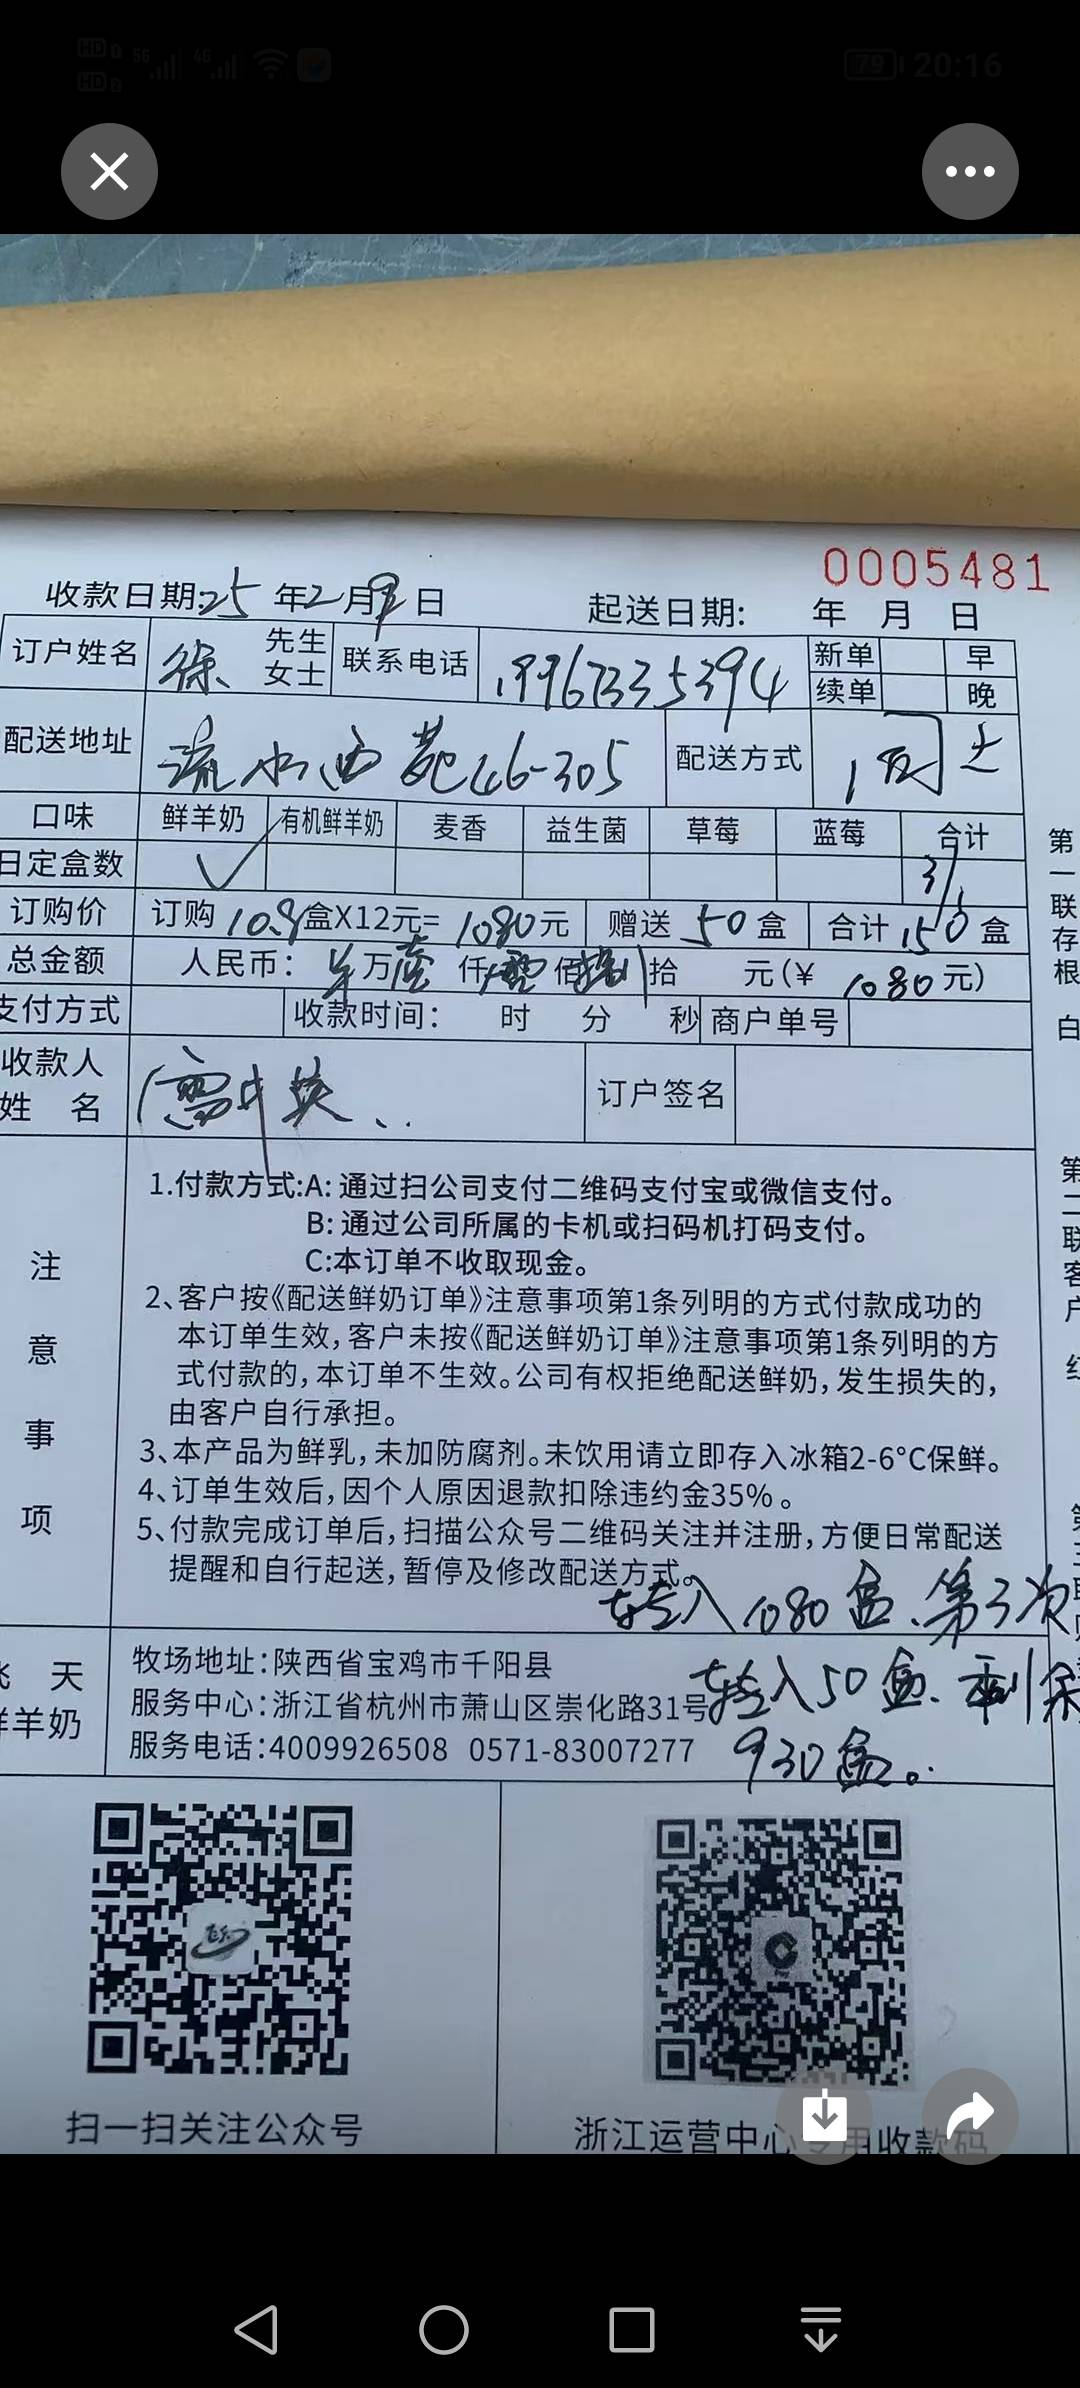 20:16
79
5G
4G
HD 1
HD 2
0005481
收款日期:25年2月9日 起送日期: 年 月 日
订户姓名 徐 先生 女士 联系电话 19967335394 新单 续单 早 晚
配送地址 流水西苑46-305 配送方式 1
口味 鲜羊奶 有机鲜羊奶 麦香 益生菌 草莓 蓝莓 合计
日定盒数 ✓
订购价 订购 盒X12元= 1080元 赠送 50 盒 合计 150 盒
总金额 人民币: 万 仟 佰 拾 元(¥ 1080元)
支付方式 收款时间: 时 分 秒 商户单号
收款人姓名 订户签名
注意事项
1.付款方式:A: 通过扫公司支付二维码支付宝或微信支付。
B: 通过公司所属的卡机或扫码机打码支付。
C:本订单不收取现金。
2、客户按《配送鲜奶订单》注意事项第1条列明的方式付款成功的
本订单生效,客户未按《配送鲜奶订单》注意事项第1条列明的方
式付款的,本订单不生效。公司有权拒绝配送鲜奶,发生损失的,
由客户自行承担。
3、本产品为鲜乳,未加防腐剂。未饮用请立即存入冰箱2-6°C保鲜。
4、订单生效后,因个人原因退款扣除违约金35%。
5、付款完成订单后,扫描公众号二维码关注并注册,方便日常配送
提醒和自行起送,暂停及修改配送方式。
转入1080盒、第3次
转入50盒、剩余
930盒。
飞天
鲜羊奶
牧场地址:陕西省宝鸡市千阳县
服务中心:浙江省杭州市萧山区崇化路31号
服务电话:4009926508 0571-83007277
扫一扫关注公众号
浙江运营中心专用收款码
第一联存根 白
第二联客户 红